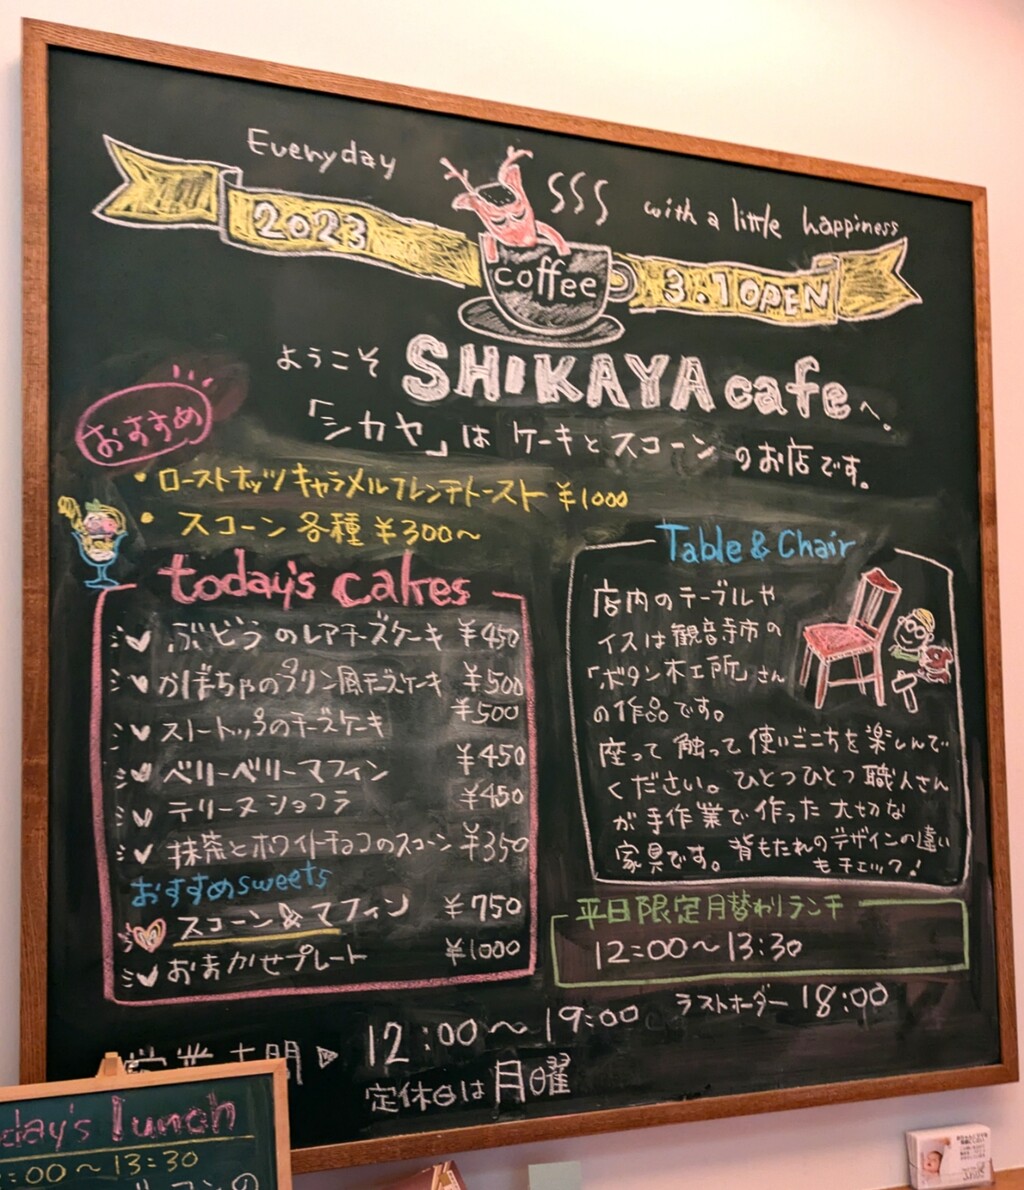 Everyday
with a little happiness
2023
coffee
3.1 OPEN
ようこそ SHIKAYA cafeへ。
「シカヤ」は ケーキとスコーン のお店です。
おすすめ
・ローストナッツキャラメルフレンチトースト ¥1000
・スコーン 各種 ¥300〜
today's cakes
ぶどうのレアチーズケーキ ¥450
かぼちゃのプリン風チーズケーキ ¥500
ストートップのチーズケーキ ¥500
ベリーベリーマフィン ¥450
テリーヌショコラ ¥450
抹茶とホワイトチョコのスコーン ¥350
おすすめsweets
スコーン&マフィン ¥750
おまかせプレート ¥1000
Table & Chair
店内のテーブルや
イスは観音寺市の
「ボタン木工所」さん
の作品です。
座って 触って 使いごこちを楽しんで
ください。ひとつひとつ 職人さん
が手作業で作った 大切な
家具です。背もたれのデザインの違い
もチェック!
平日限定月替わりランチ
12:00〜13:30
営業時間 ▷ 12:00〜19:00 ラストオーダー 18:00
定休日は 月曜
day's lunch
:00〜13:30